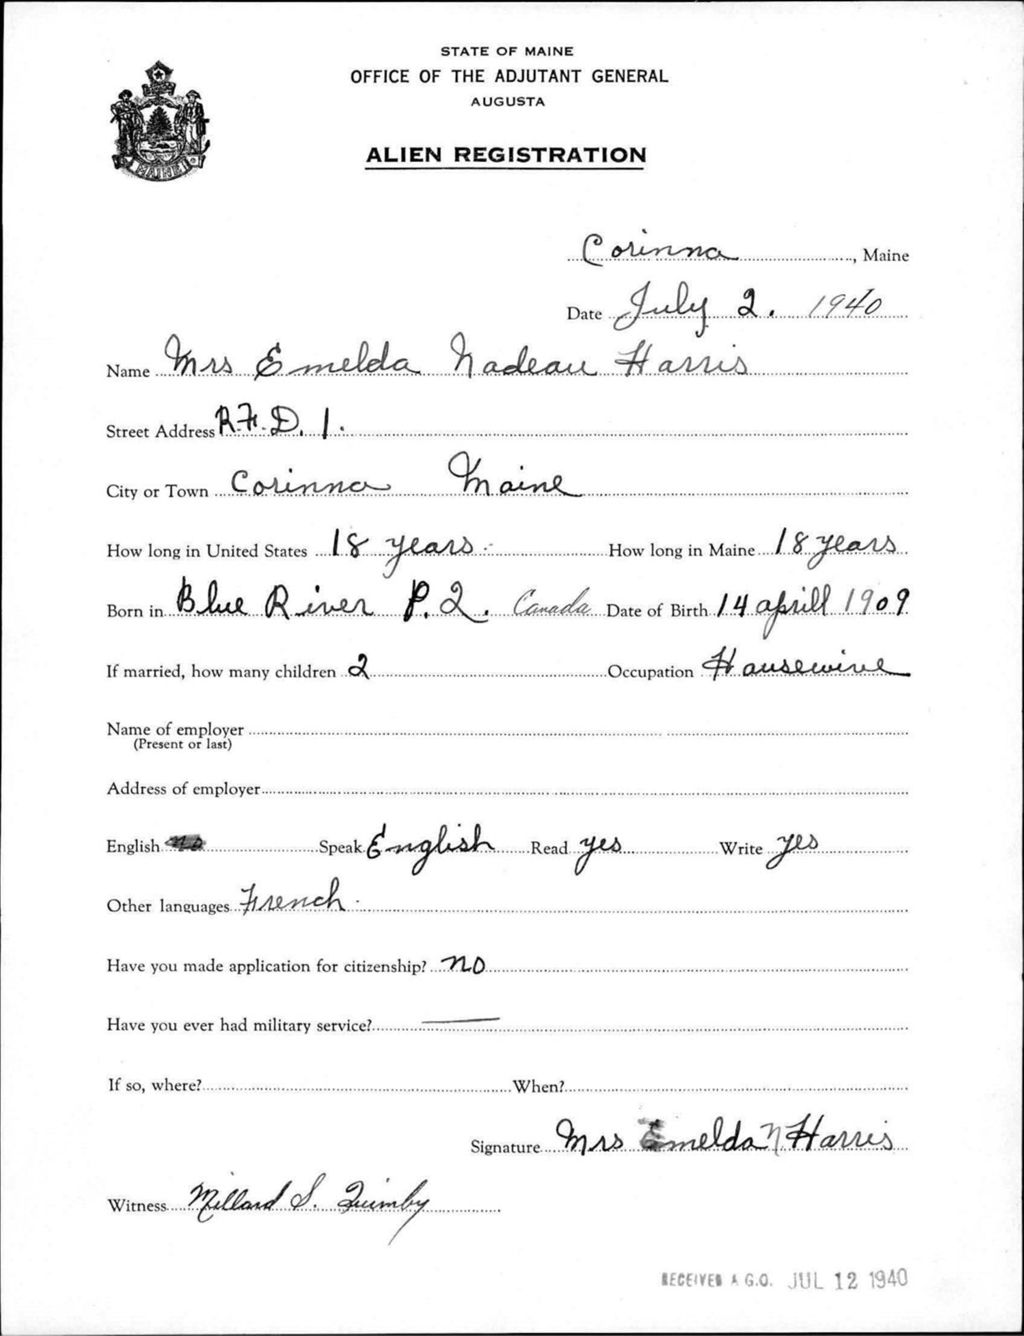 STATE OF MAINE
OFFICE OF THE ADJUTANT GENERAL
AUGUSTA
ALIEN REGISTRATION
MAINE
Corinna, Maine
Date July 2. 1940
Name Mrs Emelda Nadeau Harris
Street Address R.F.D. 1.
City or Town Corinna Maine
How long in United States 18 years. How long in Maine 18 years
Born in Blue River P.Q. Canada Date of Birth 14 aprill 1909
If married, how many children 2 Occupation Hausewive
Name of employer
(Present or last)
Address of employer
English no Speak English Read yes Write yes
Other languages French.
Have you made application for citizenship? no
Have you ever had military service? —
If so, where? When?
Signature Mrs Emelda N Harris
Witness Millard S. Quimby
RECEIVED A.G.O. JUL 12 1940